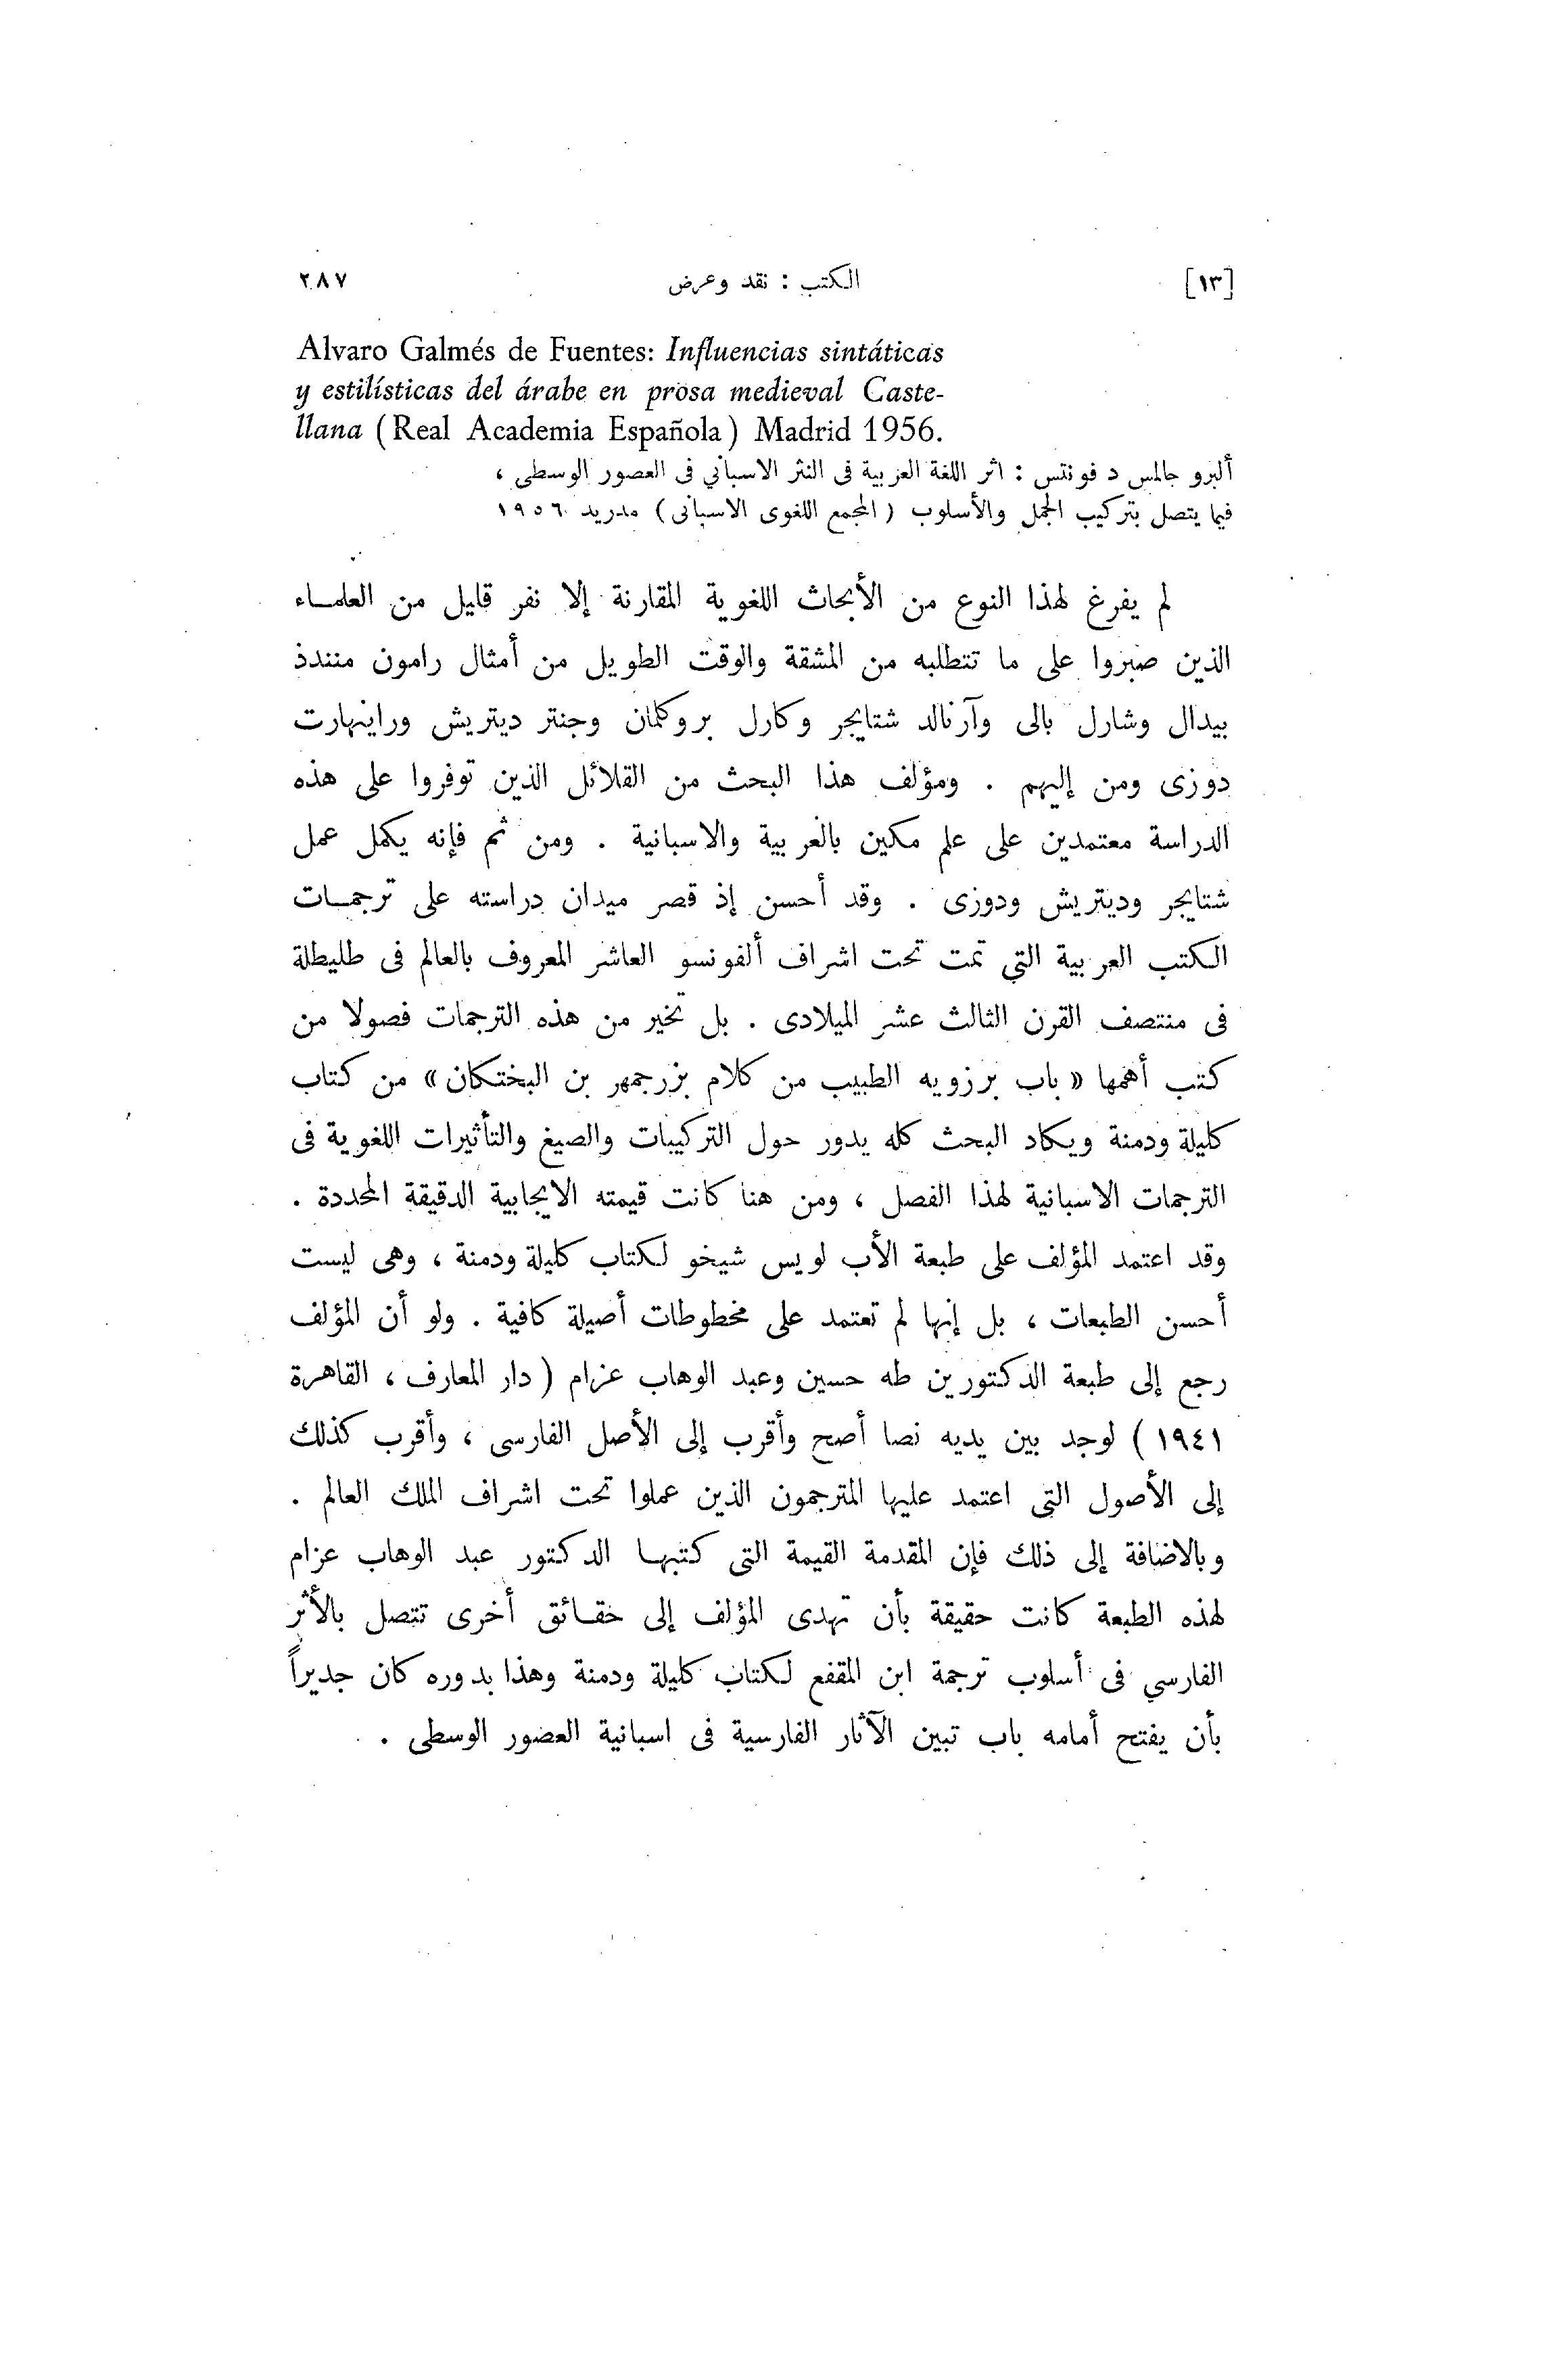 [١٣] الكتب : نقد وعرض ٢٨٧
Alvaro Galmés de Fuentes: Influencias sintáticas
y estilísticas del árabe en prosa medieval Caste-
llana (Real Academia Española) Madrid 1956.
ألبرو جالمس د فونتس : اثر اللغة العربية فى النثر الاسباني فى العصور الوسطى ،
فيما يتصل بتركيب الجمل والأسلوب ( المجمع اللغوى الاسبانى ) مدريد ١٩٥٦
لم يفرغ لهذا النوع من الأبحاث اللغوية المقارنة إلا نفر قليل من العلماء
الذين صبروا على ما تتطلبه من المشقة والوقت الطويل من أمثال رامون منندذ
بيدال وشارل بالى وآرنالد شتايجر وكارل بروكلمان وجنتر ديتريش وراينهارت
دوزى ومن إليهم . ومؤلف هذا البحث من القلائل الذين توفروا على هذه
الدراسة معتمدين على علم مكين بالعربية والاسبانية . ومن ثم فإنه يكمل عمل
شتايجر وديتريش ودوزى . وقد أحسن إذ قصر ميدان دراسته على ترجمات
الكتب العربية التي تمت تحت اشراف ألفونسو العاشر المعروف بالعالم فى طليطلة
فى منتصف القرن الثالث عشر الميلادى . بل تخير من هذه الترجمات فصولا من
كتب أهمها « باب برزويه الطبيب من كلام بزرجمهر بن البختكان » من كتاب
كليلة ودمنة ويكاد البحث كله يدور حول التركيبات والصيغ والتأثيرات اللغوية فى
الترجمات الاسبانية لهذا الفصل ، ومن هنا كانت قيمته الايجابية الدقيقة المحددة .
وقد اعتمد المؤلف على طبعة الأب لويس شيخو لكتاب كليلة ودمنة ، وهى ليست
أحسن الطبعات ، بل إنها لم تعتمد على مخطوطات أصيلة كافية . ولو أن المؤلف
رجع إلى طبعة الدكتورين طه حسين وعبد الوهاب عزام ( دار المعارف ، القاهرة
١٩٤١ ) لوجد بين يديه نصا أصح وأقرب إلى الأصل الفارسى ، وأقرب كذلك
إلى الأصول التى اعتمد عليها المترجمون الذين عملوا تحت اشراف الملك العالم .
وبالاضافة إلى ذلك فإن المقدمة القيمة التى كتبها الدكتور عبد الوهاب عزام
لهذه الطبعة كانت حقيقة بأن تهدى المؤلف إلى حقائق أخرى تتصل بالأثر
الفارسي فى أسلوب ترجمة ابن المقفع لكتاب كليلة ودمنة وهذا بدوره كان جديراً
بأن يفتح أمامه باب تبين الآثار الفارسية فى اسبانية العصور الوسطى .